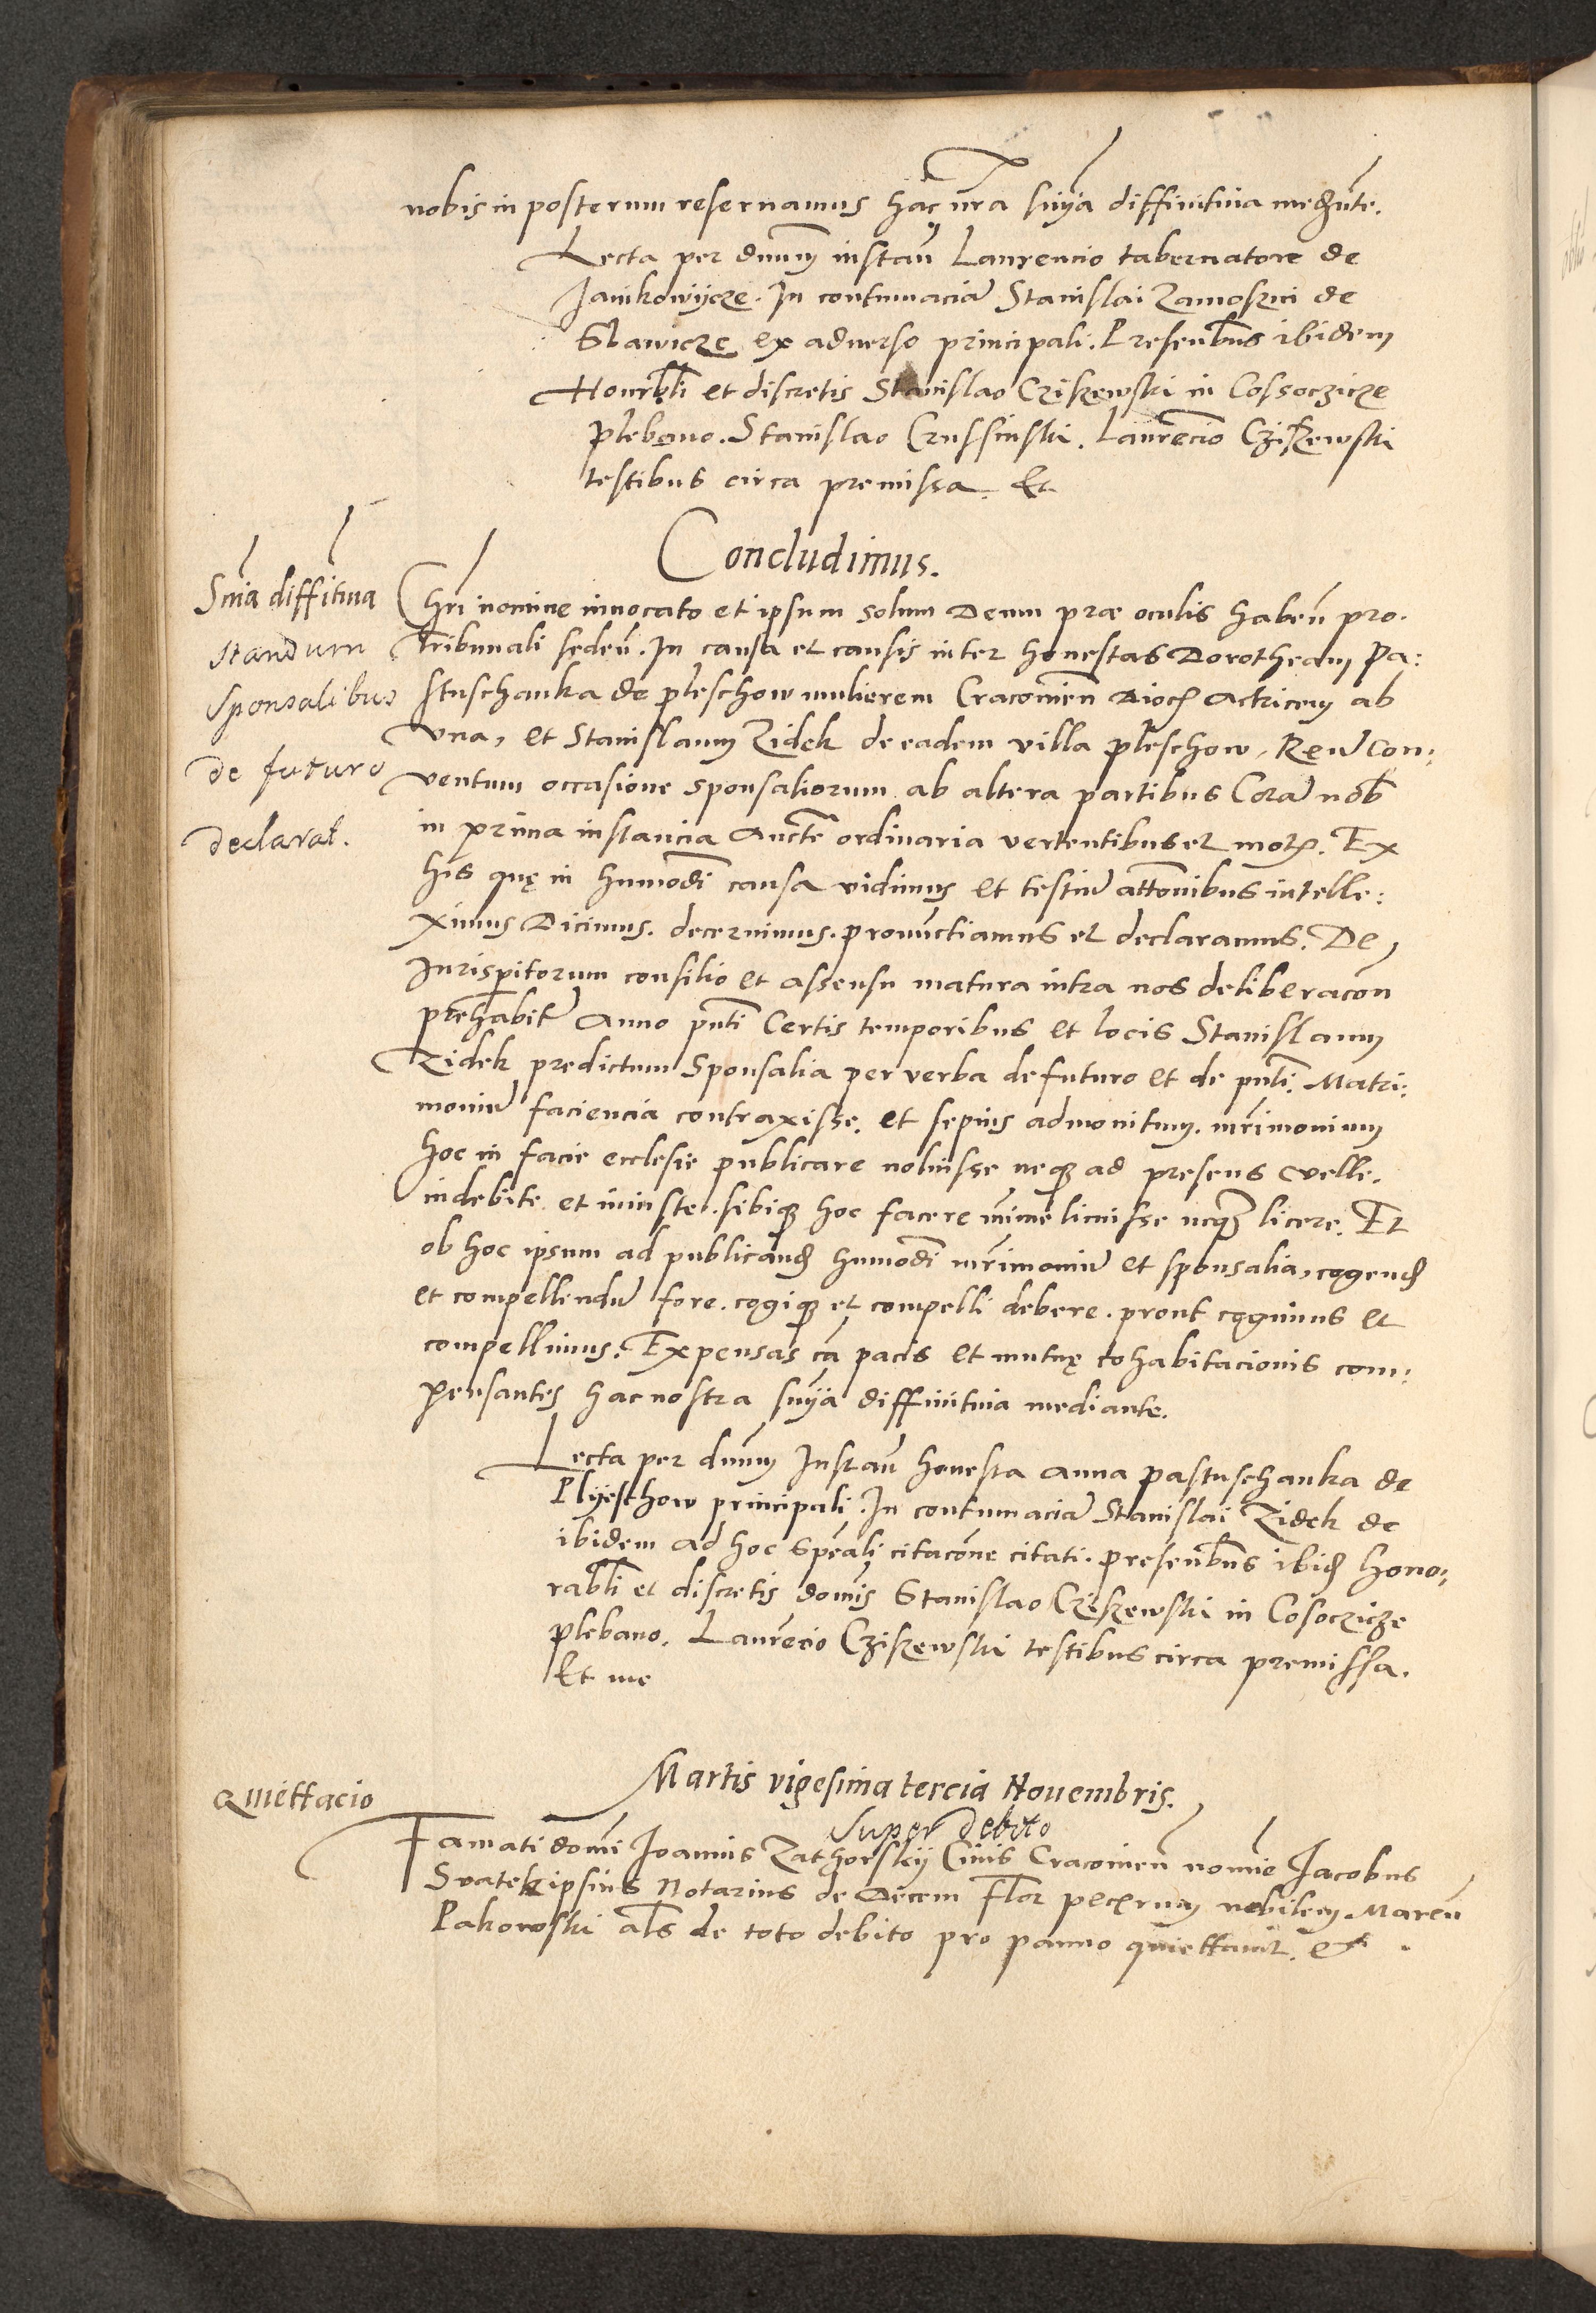 nobis in posterum reseruamus hac nra snia diffinitiua mednte.
Lecta per dnum instan Laurencio tabernatore de
Janikowijcze. In contumacia Stanislai Zamoszni de
Slawicze ex aduerso principali. Presenbus ibidem
Honrbli et discretis Stanislao Cziszewski in Cossoczicze
plebano. Stanislao Crussinski. Laurencio Cziszewski
testibus circa premissa. Et
Concludimus.
Snia diffitiua
standum
sponsalibus
de futuro
declarat.
Chri nomine inuocato et ipsum solum Deum præ oculis haben pro.
Tribunali seden. In causa et causis inter honestas Dorotheam Pa:
stuschanka de pleschow mulierem Cracouien dioc Actricem ab
vna, et Stanislaum Zidek de eadem villa pleschow, Reu Con:
uentum occasione sponsaliorum ab altera partibus Cora nob
in prima instancia Aucte ordinaria vertentibus et mot. Ex
his quę in humodi causa vidimus et testiu attonibus intelle:
ximus Dicimus. decernimus. pronunctiamus et declaramus. De
Jurisperitorum consilio et assensu matura intra nos deliberacon
prehabit Anno pnti Certis temporibus et locis Stanislaum
Zidek predictum Sponsalia per verba de futuro et de pnti. Matri:
moniu faciencia contraxisse. et sepius admonitum. mrimonium
hoc in facie ecclesie publicare noluisse neq ad presens velle.
indebite et iniuste. sibiq hoc facere mime licuisse neq licere. Et
ob hoc ipsum ad publicand humodi mrimoniu et sponsalia, cogend
et compellendu fore. cogiq et compelli debere. prout cogimus et
compellimus. Expensas ca pacis et mutuę cohabitacionis com:
pensantes hac nostra snia diffinitiua mediante.
Lecta per dnum Instan honesta Anna pastuschanka de
Plyeschow principali. In contumacia Stanislai Zidek de
ibidem ad hoc speali citacone citati. presenbus ibid hono:
rabli et discretis domis Stanislao Cziszewski in Cosoczicze
plebano. Laurecio Cziszewski testibus circa premissa.
Et me
Martis vigesima tercia Nouembris.
Quiettacio
super debito
Famati domi Joannis Zathorskij Ciuis Cracouien nomie Jacobus
Svatek ipsius Notarius de decem Flor pecxrum nobilem Marcu
Pakowski als de toto debito pro panno quiettauit. et